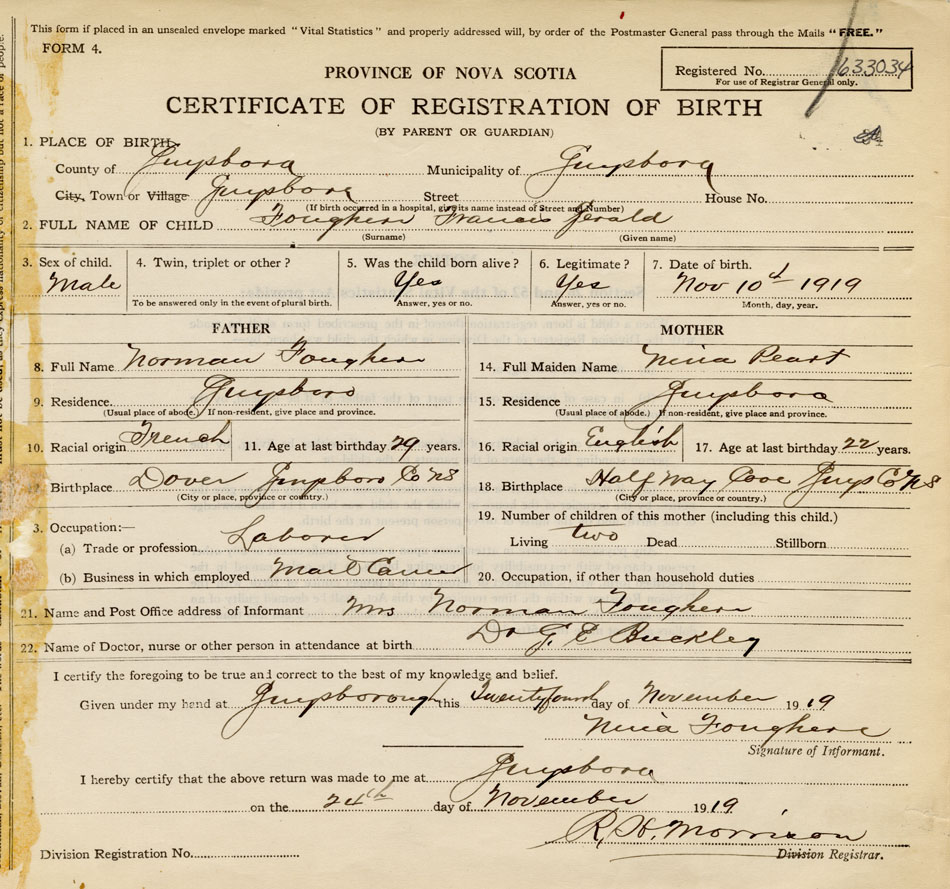 This form if placed in an unsealed envelope marked "Vital Statistics" and properly addressed will, by order of the Postmaster General pass through the Mails "FREE."
FORM 4.
Registered No. 633034
For use of Registrar General only.
PROVINCE OF NOVA SCOTIA
CERTIFICATE OF REGISTRATION OF BIRTH
(BY PARENT OR GUARDIAN)
1. PLACE OF BIRTH
County of Guysboro Municipality of Guysboro
City, Town or Village Guysboro Street House No.
(If birth occurred in a hospital, give its name instead of Street and Number)
2. FULL NAME OF CHILD Foughere Francis Gerald
(Surname) (Given name)
3. Sex of child. 4. Twin, triplet or other? 5. Was the child born alive? 6. Legitimate? 7. Date of birth.
Male Yes Yes Nov 10th 1919
To be answered only in the event of plural birth. Answer, yes or no. Answer, yes or no. Month, day, year.
FATHER MOTHER
8. Full Name Norman Foughere 14. Full Maiden Name Nina Peart
9. Residence. Guysboro 15. Residence Guysboro
(Usual place of abode.) If non-resident, give place and province. (Usual place of abode.) If non-resident, give place and province.
10. Racial origin French 11. Age at last birthday 29 years. 16. Racial origin English 17. Age at last birthday 22 years.
12. Birthplace Dover Guysboro Co NS 18. Birthplace Half Way Cove Guys Co NS
(City or place, province or country.) (City or place, province or country.)
3. Occupation:— 19. Number of children of this mother (including this child.)
(a) Trade or profession Laborer Living two Dead Stillborn
(b) Business in which employed Mail Carrier 20. Occupation, if other than household duties
21. Name and Post Office address of Informant Mrs Norman Foughere
22. Name of Doctor, nurse or other person in attendance at birth Dr G. E Buckley
I certify the foregoing to be true and correct to the best of my knowledge and belief.
Given under my hand at Guysborough this Twentyfourth day of November 1919
Nina Foughere
Signature of Informant.
I hereby certify that the above return was made to me at Guysboro
on the 24th day of November 1919
R. H. Morrison
Division Registration No. Division Registrar.